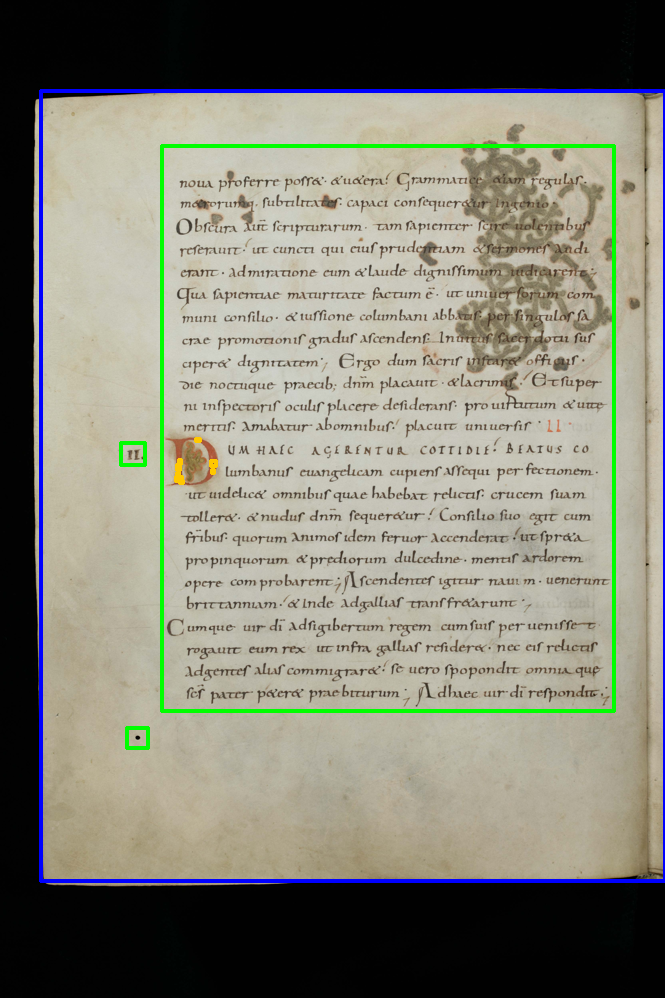 nova proferre posse. & uera! Grammatice etiam regulas.
metrorumq. subtilitates. capaci consequeretur ingenio.
Obscura aut scripturarum. tam sapienter scire uolentibus
reserauit. ut cuncti qui eius prudentiam & sermones audi
erant. Admiratione eum & laude dignissimum iudicarent.
Qua sapientiae maturitate factum ē. ut uniuersorum com
muni consilio. & iussione columbani abbatis. per singulos sa
crae promotionis gradus ascendens. Inuitus sacerdotii sus
ciper& dignitatem; Ergo dum sacris instar& officiis.
die noctuque praecib; dnm placauit. & lacrimis. Et super
ni inspectoris oculis placere desiderans. pro uirtutum & uite
meritis. Amabatur abomnibus. placuit uniuersis. II
II. DUM HAEC AGERENTUR COTTIDIE. BEATUS CO
lumbanus euangelicam cupiens assequi perfectionem.
ut uidelic& omnibus quae habebat relictis. crucem suam
toller&. & nudus dnm sequer&ur! Consilio suo egit cum
fribus. quorum Animos idem feruor Accenderat. ut spr&a
propinquorum & prediorum dulcedine. mentis ardorem
opere comprobarent; Ascendentes igitur nauim. uenerunt
brittanniam. & inde Adgallias transfr&arunt;
Cumque uir di Adsigibertum regem cum suis peruenisset.
rogauit eum rex ut infra gallias resider&. nec eis relictis
Adgentes alias commigrar&. se uero spopondit omnia que
scs pater p&er& praebiturum; Adhaec uir di respondit;